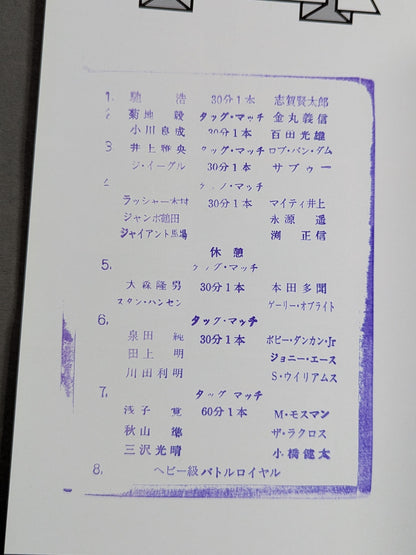 1. 馳 浩 30分1本 志賀賢太郎
2 菊地 毅 タッグ・マッチ 金丸義信
小川良成 30分1本 百田光雄
3. 井上雅央 タッグ・マッチ ロブ・バン・ダム
ジ・イーグル 30分1本 サブゥー
4
ラッシャー木村 30分1本 マイティ井上
ジャンボ鶴田 永源 遥
ジャイアント馬場 渕 正信
休憩
5. タッグ・マッチ
大森隆男 30分1本 本田多聞
スタン・ハンセン ゲーリー・オブライト
6. タッグ・マッチ
泉田 純 30分1本 ボビー・ダンカン・Jr
田上 明 ジョニー・エース
川田利明 S・ウイリアムス
7. タッグ マッチ
浅子 覚 60分1本 M・モスマン
秋山 準 ザ・ラクロス
三沢光晴 小橋健太
8. ヘビー級バトルロイヤル